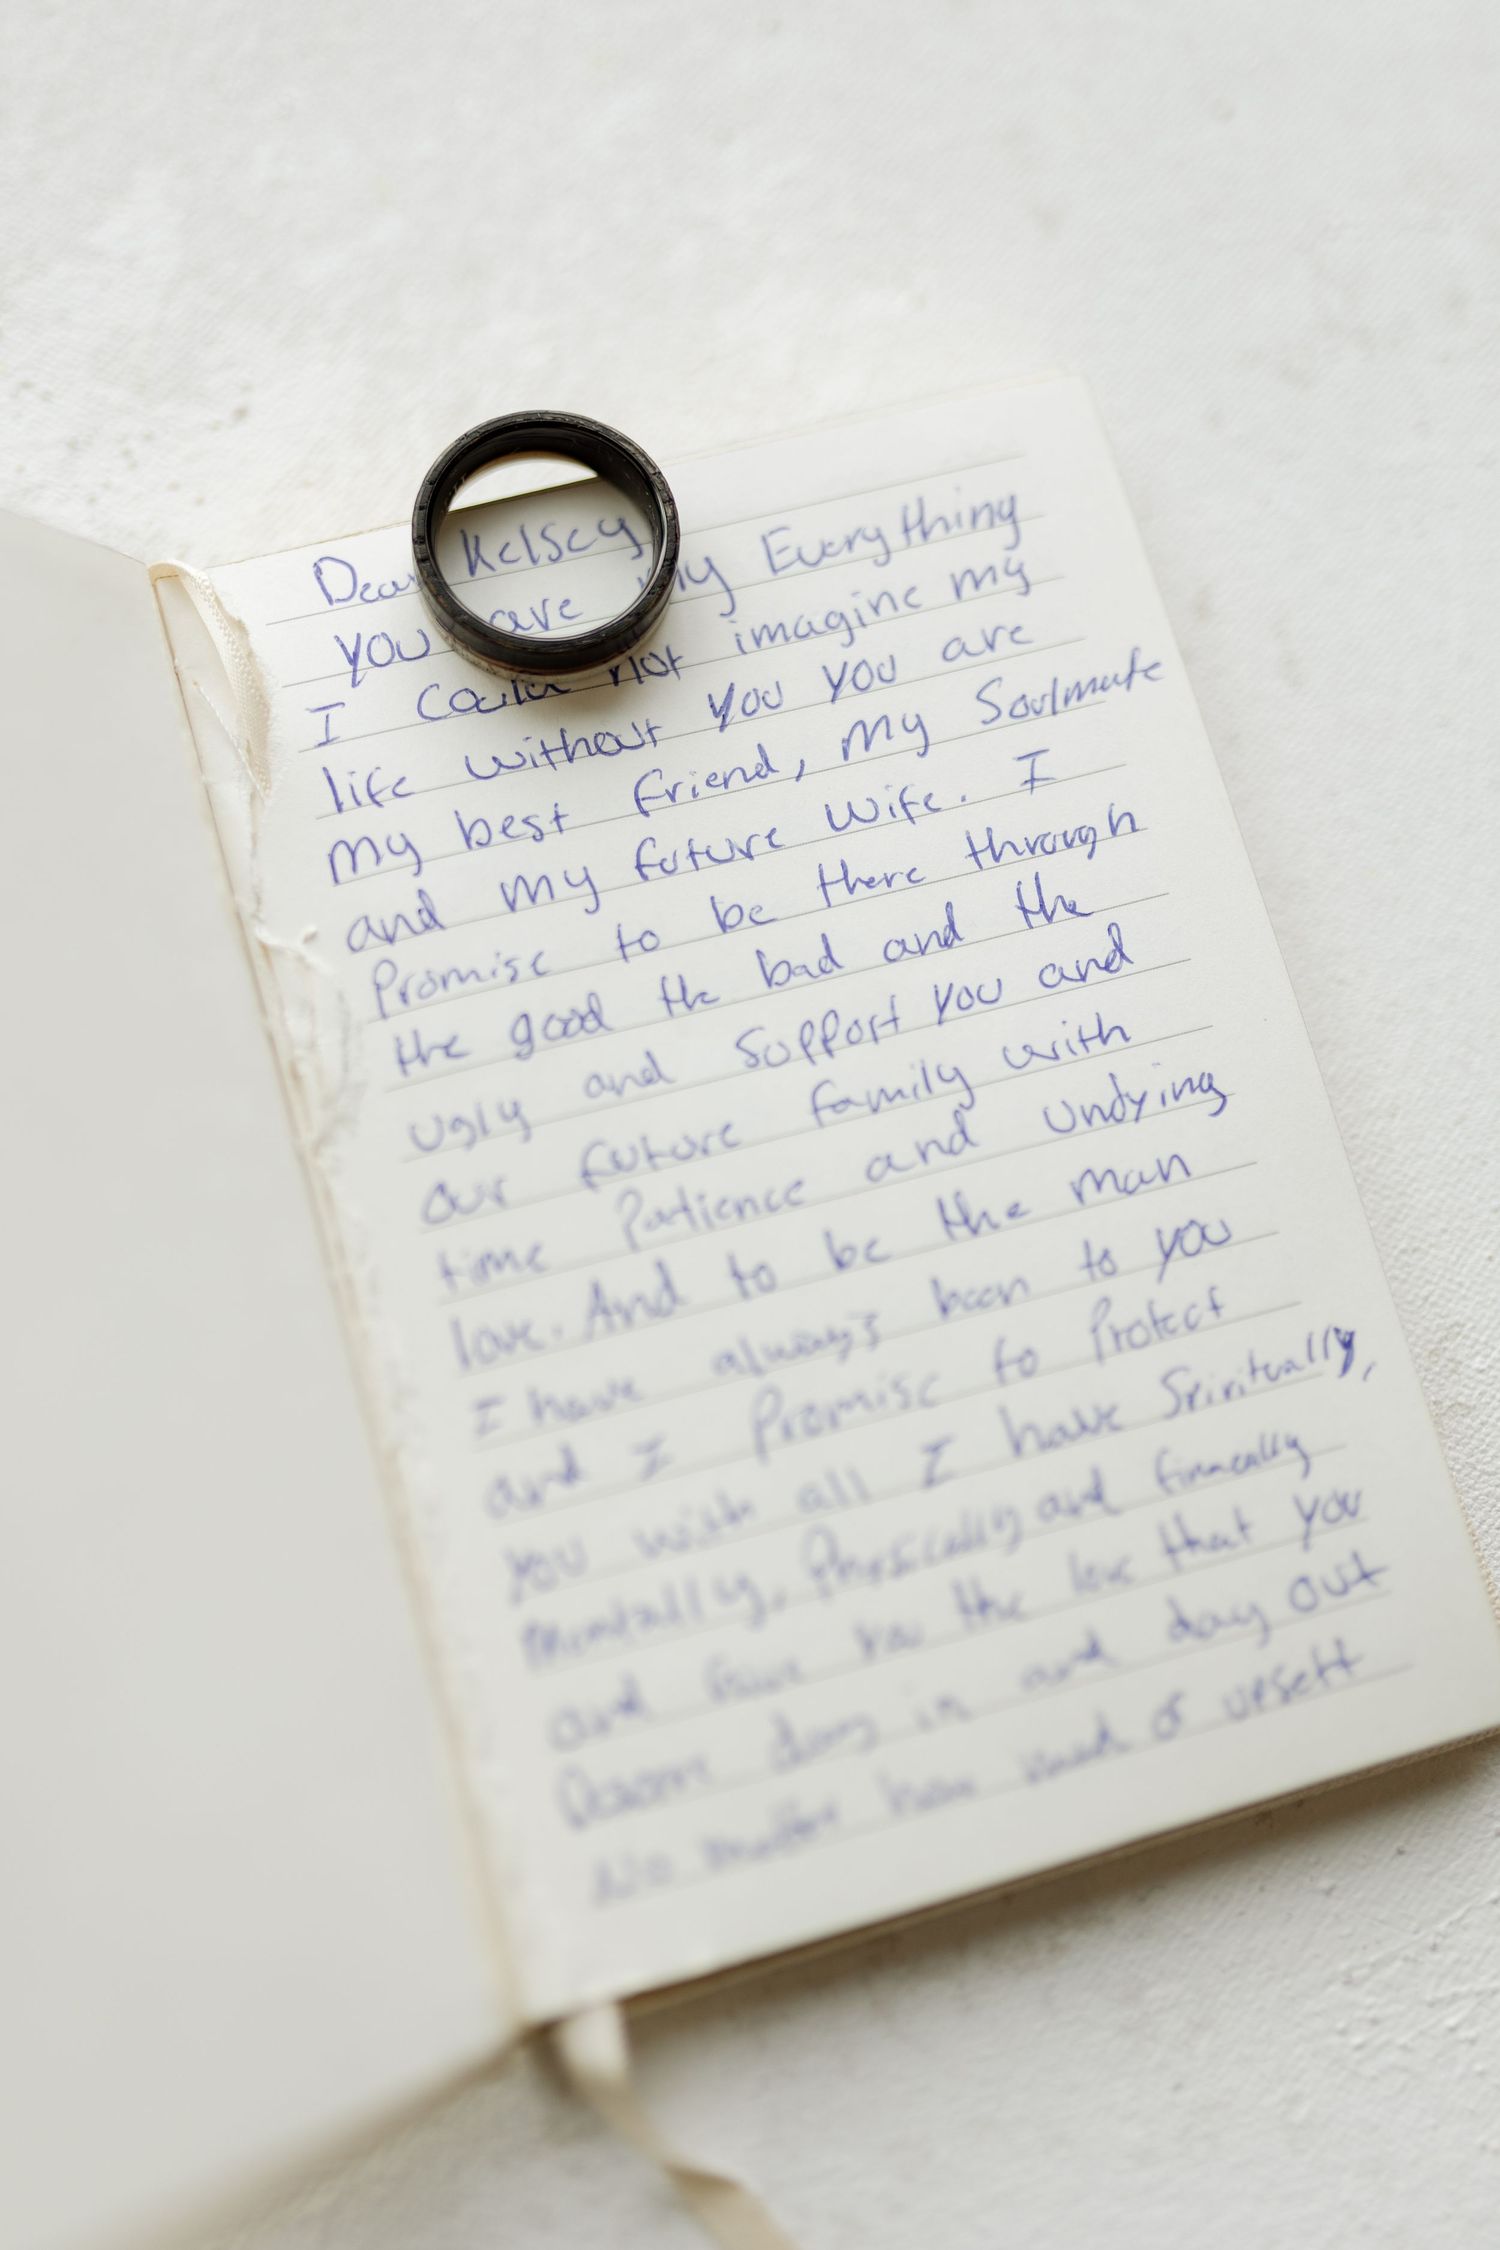 Dear Kelsey
You are my Everything
I could not imagine my
life without you you are
my best friend, my Soulmate
and my future wife. I
Promise to be there through
the good the bad and the
ugly and Support you and
our future family with
time Patience and undying
love. And to be the man
I have always been to you
and I Promise to Protect
you with all I have Spiritually,
Mentally, Physically and finacally
and Give you the love that you
day in and day out
No matter how mad or upsett